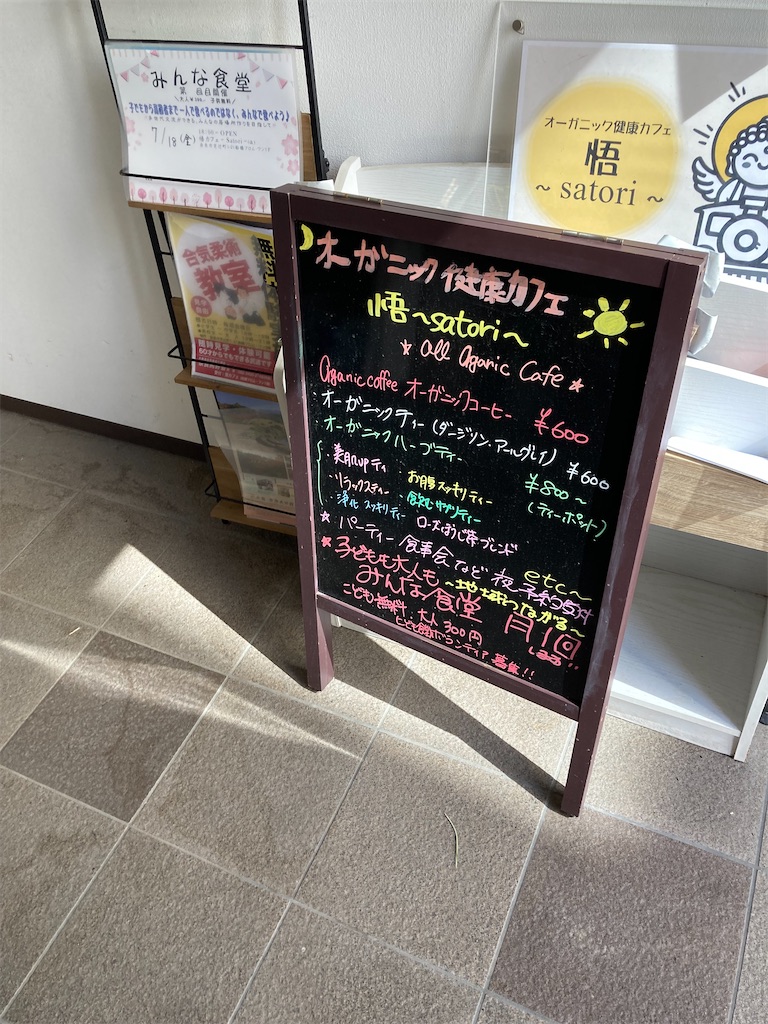 みんな食堂
第 回目開催
子どもから高齢者まで一人で食べるのではなく、みんなで食べよう♪
7/18(金)
18:00~OPEN
合気柔術
教室
随時見学・体験可能
オーガニック健康カフェ
悟
~ satori ~
オーガニック健康カフェ
悟~satori~
☆ all Oganic Cafe ☆
Oganic coffee オーガニックコーヒー ¥600
オーガニックティー (ダージリン・アールグレイ) ¥600
オーガニックハーブティー ¥800~
(ティーポット)
美肌UPティ お腹スッキリティー
リラックスティー 飲むサプリティー
浄化スッキリティー ローズほうじ茶ブレンド
etc~
☆ パーティー 食事会など 夜予約受付
☆ 子どもも大人も ~地域つながる~
みんな食堂 月1回
こども無料 大人300円 しまる!!
こども食堂ボランティア募集!!